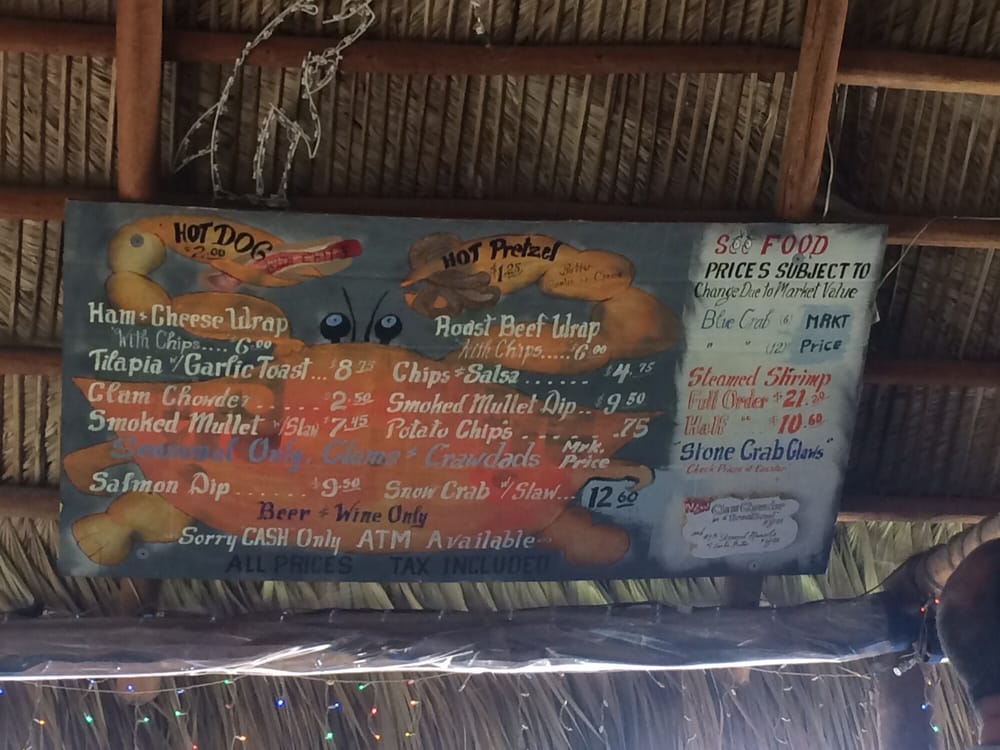 HOT DOG
$2.00
HOT Pretzel
$1.25
Butter
Ham & Cheese Wrap
With Chips.... 6.00
Roast Beef Wrap
With Chips..... $6.00
Tilapia w/ Garlic Toast... $8.75
Chips & Salsa ...... $4.75
Clam Chowder ...... $2.50
Smoked Mullet Dip.. $9.50
Smoked Mullet w/Slaw $7.45
Potato Chips .... .75
Seasonal Only, Clams & Crawdads Mrk. Price
Salmon Dip....... $9.50
Snow Crab w/Slaw... 12.60
Beer & Wine Only
Sorry CASH Only ATM Available
ALL PRICES TAX INCLUDED
See FOOD
PRICES SUBJECT TO
Change Due to Market Value
Blue Crab (6) MRKT
" " (12) Price
Steamed Shrimp
Full Order $21.20
Half " $10.60
"Stone Crab Claws"
Check Prices at Counter
New Clam Chowder
in a Bread Bowl